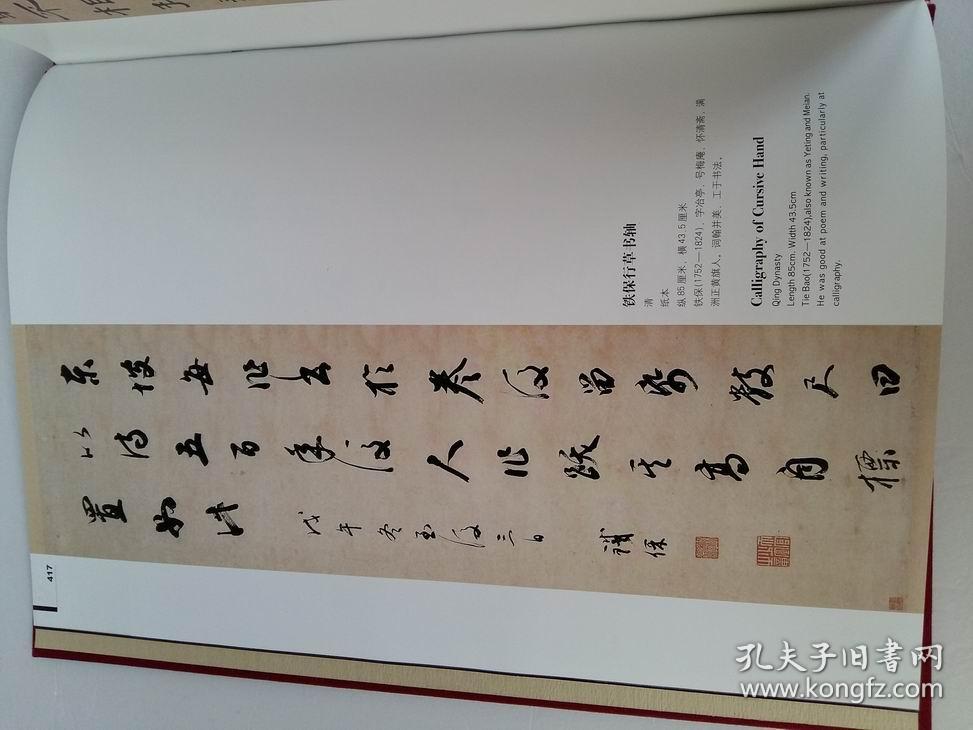 東坡每作書於卷後留素數尺曰
以待五百年後人作跋其高自標
置如此
戊午冬至後三日
鐵保
铁保行草书轴
清
纸本
纵 85 厘米，横 43.5 厘米
铁保(1752—1824)，字冶亭，号梅庵，怀清斋，满
洲正黄旗人。词翰并美，工于书法。
Calligraphy of Cursive Hand
Qing Dynasty
Length 85cm, Width 43.5cm
Tie Bao(1752—1824),also known as Yeting and Meian.
He was good at poem and writing, particularly at
calligraphy.
417
孔夫子旧书网
www.kongfz.com